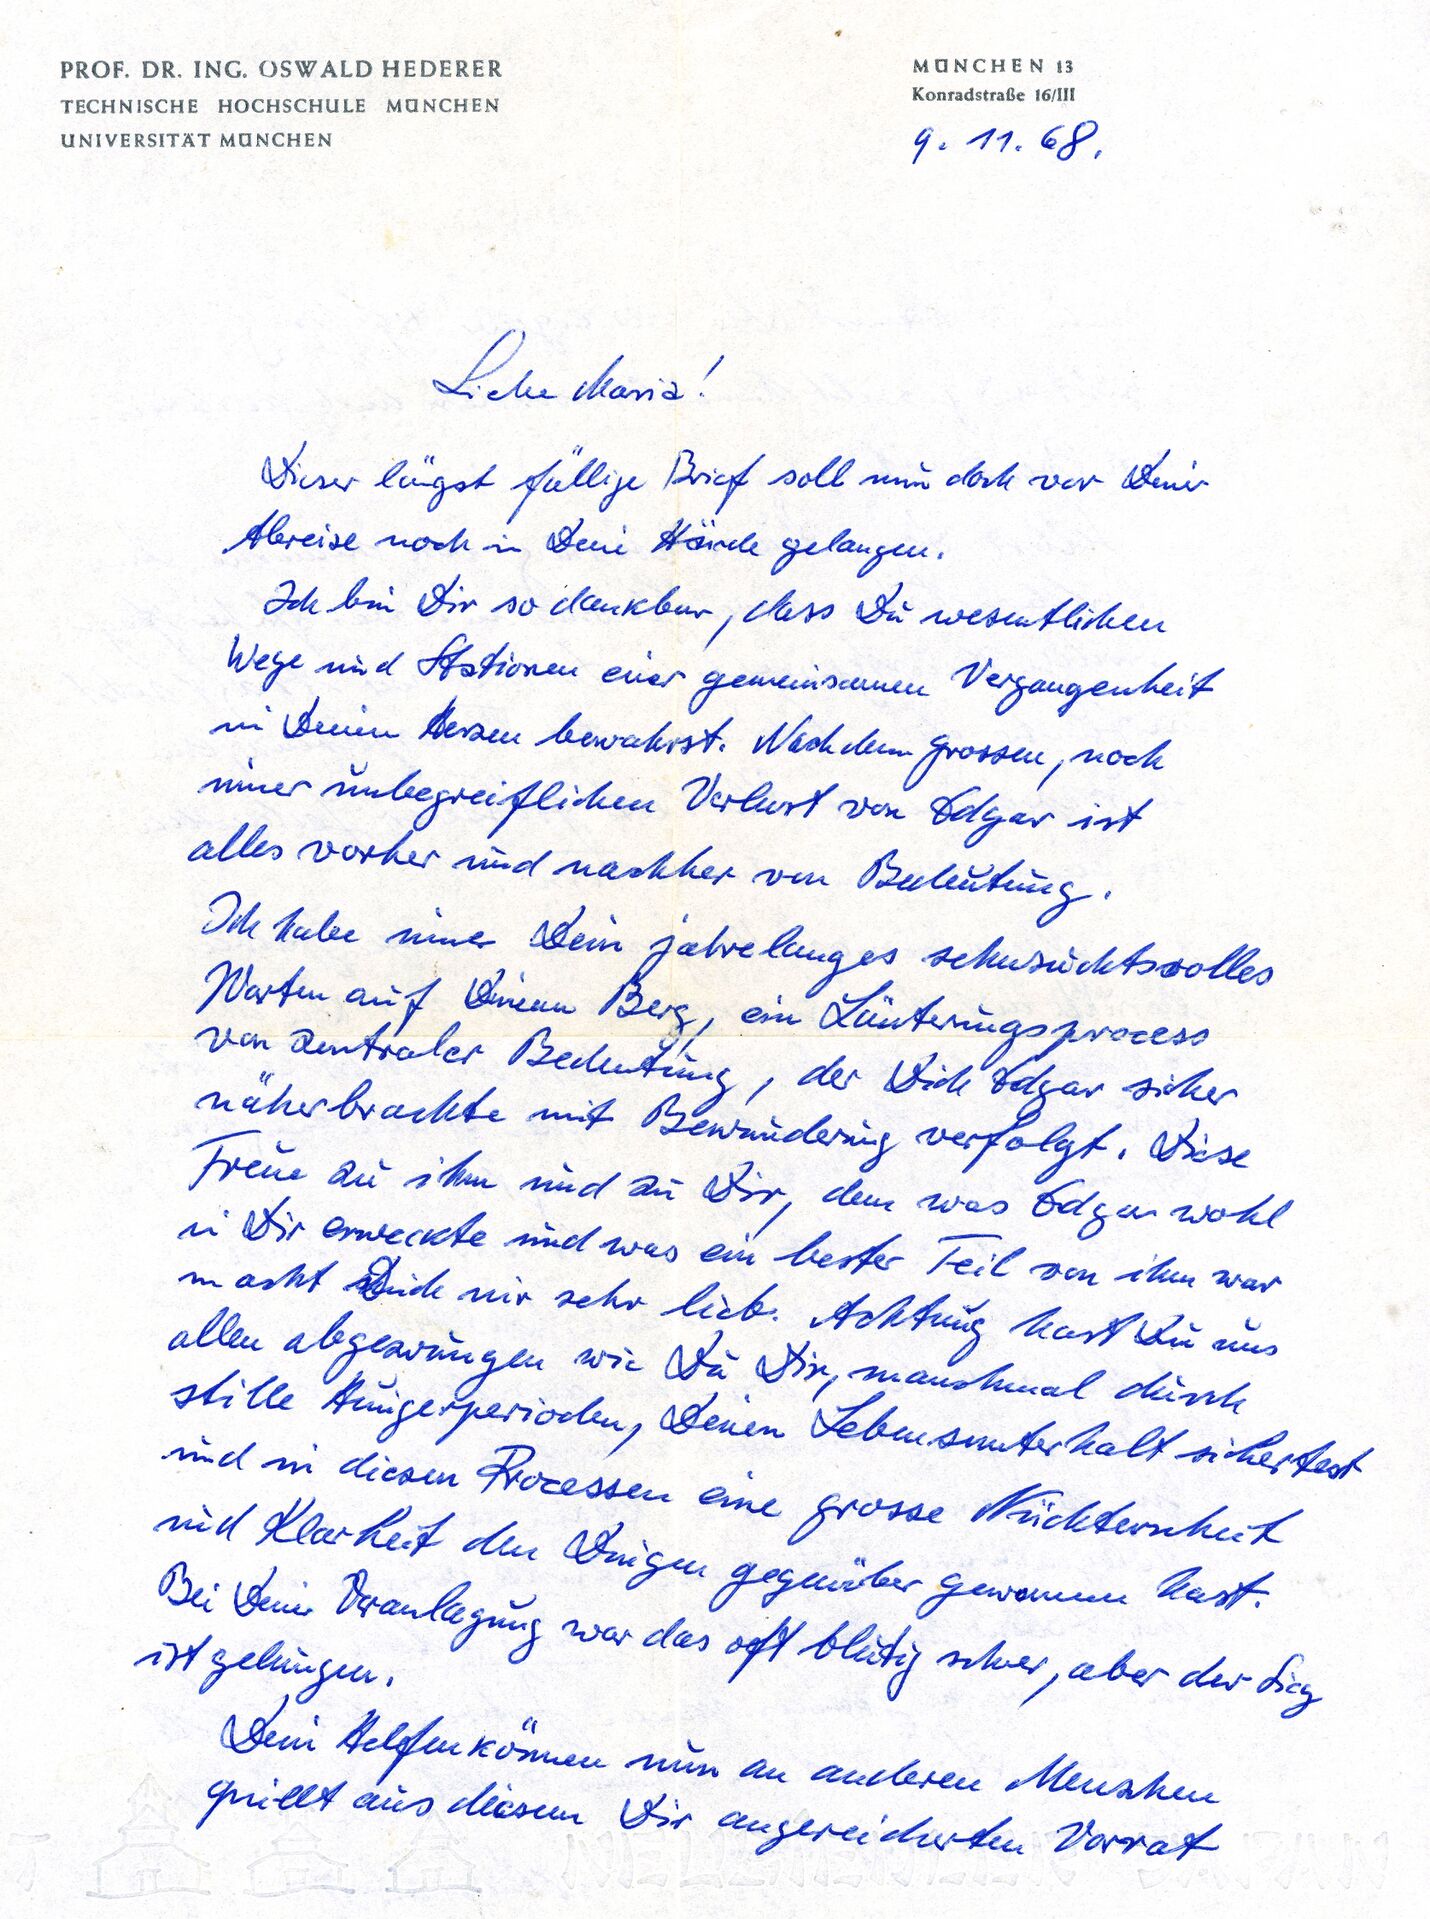 PROF. DR. ING. OSWALD HEDERER
TECHNISCHE HOCHSCHULE MÜNCHEN
UNIVERSITÄT MÜNCHEN
MÜNCHEN 13
Konradstraße 16/III
9. 11. 68.
Liebe Maria!
Dieser längst fällige Brief soll nun doch vor Deiner
Abreise noch in Deine Hände gelangen.
Ich bin Dir so dankbar, dass Du wesentlichen
Wege und Stationen einer gemeinsamen Vergangenheit
in Deinem Herzen bewahrst. Nach dem grossen, noch
immer unbegreiflichen Verlust von Edgar ist
alles vorher und nachher von Bedeutung.
Ich habe immer Dein jahrelanges sehnsuchtsvolles
Warten auf Deinem Berg, ein Läuterungsprocess
von zentraler Bedeutung, der Dich Edgar sicher
näherbrachte mit Bewunderung verfolgt. Diese
Treue zu ihm und zu Dir, dem was Edgar wohl
in Dir erweckte und was ein bester Teil von ihm war
macht Dich mir sehr lieb. Achtung hast Du uns
allen abgezwungen wie Du Dir, manchmal durch
stille Hungerperioden, Deinen Lebensunterhalt sichertest
und in diesen Processen eine grosse Nüchternheit
und Klarheit den Dingen gegenüber gewonnen hast.
Bei Deiner Veranlagung war das oft blutig schwer, aber der Sieg
ist gelungen.
Dein Helfenkönnen nun an anderen Menschen
quillt aus diesem Dir angereicherten Vorrat